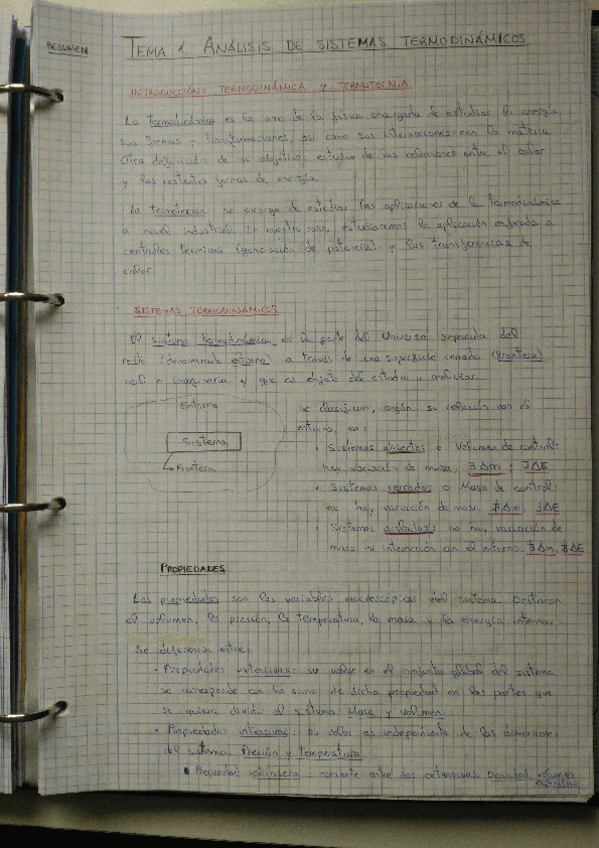 RESUMEN
TEMA 1. ANÁLISIS DE SISTEMAS TERMODINÁMICOS
INTRODUCCIÓN: TERMODINÁMICA Y TERMOTECNIA
La termodinámica es la rama de la física encargada de estudiar la energía,
sus formas y transformaciones, así como sus interacciones con la materia.
Otra definición de su objetivo: estudio de las relaciones entre el calor
y las restantes formas de energía.
La termotecnia se encarga de estudiar las aplicaciones de la termodinámica
a nivel industrial. En nuestro caso, estudiaremos la aplicación enfocada a
centrales térmicas (generación de potencia) y las transferencias de
calor.
SISTEMAS TERMODINÁMICOS
El sistema termodinámico es la parte del Universo separada del
resto (denominado entorno) a través de una superficie cerrada (frontera)
real o imaginaria y que es objeto del estudio a analizar.
Entorno
Sistema
Frontera
Se clasifican, según su relación con el
entorno, en:
• Sistemas abiertos o Volumen de control:
hay variación de masa, ∃Δm y ∃ΔE
• Sistemas cerrados o Masa de control:
no hay variación de masa. ∄Δm, ∃ΔE
• Sistemas aislados: no hay variación de
masa ni interacción con el entorno. ∄Δm, ∄ΔE
PROPIEDADES
Las propiedades son las variables macroscópicas del sistema. Destacan
el volumen, la presión, la temperatura, la masa y la energía interna.
Se diferencia entre:
• Propiedades extensivas: su valor en el conjunto global del sistema
se corresponde con la suma de dicha propiedad en las partes que
se quiera dividir el sistema. Masa y volumen.
• Propiedades intensivas: su valor es independiente de las dimensiones
del sistema. Presión y temperatura
• Propiedad específica: cociente entre dos extensivas. Densidad, volumen
específico